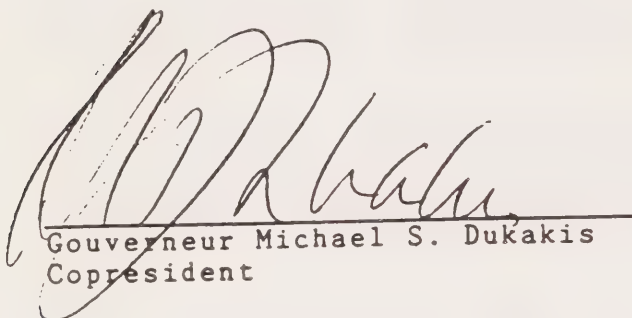 Gouverneur Michael S. Dukakis
Coprésident